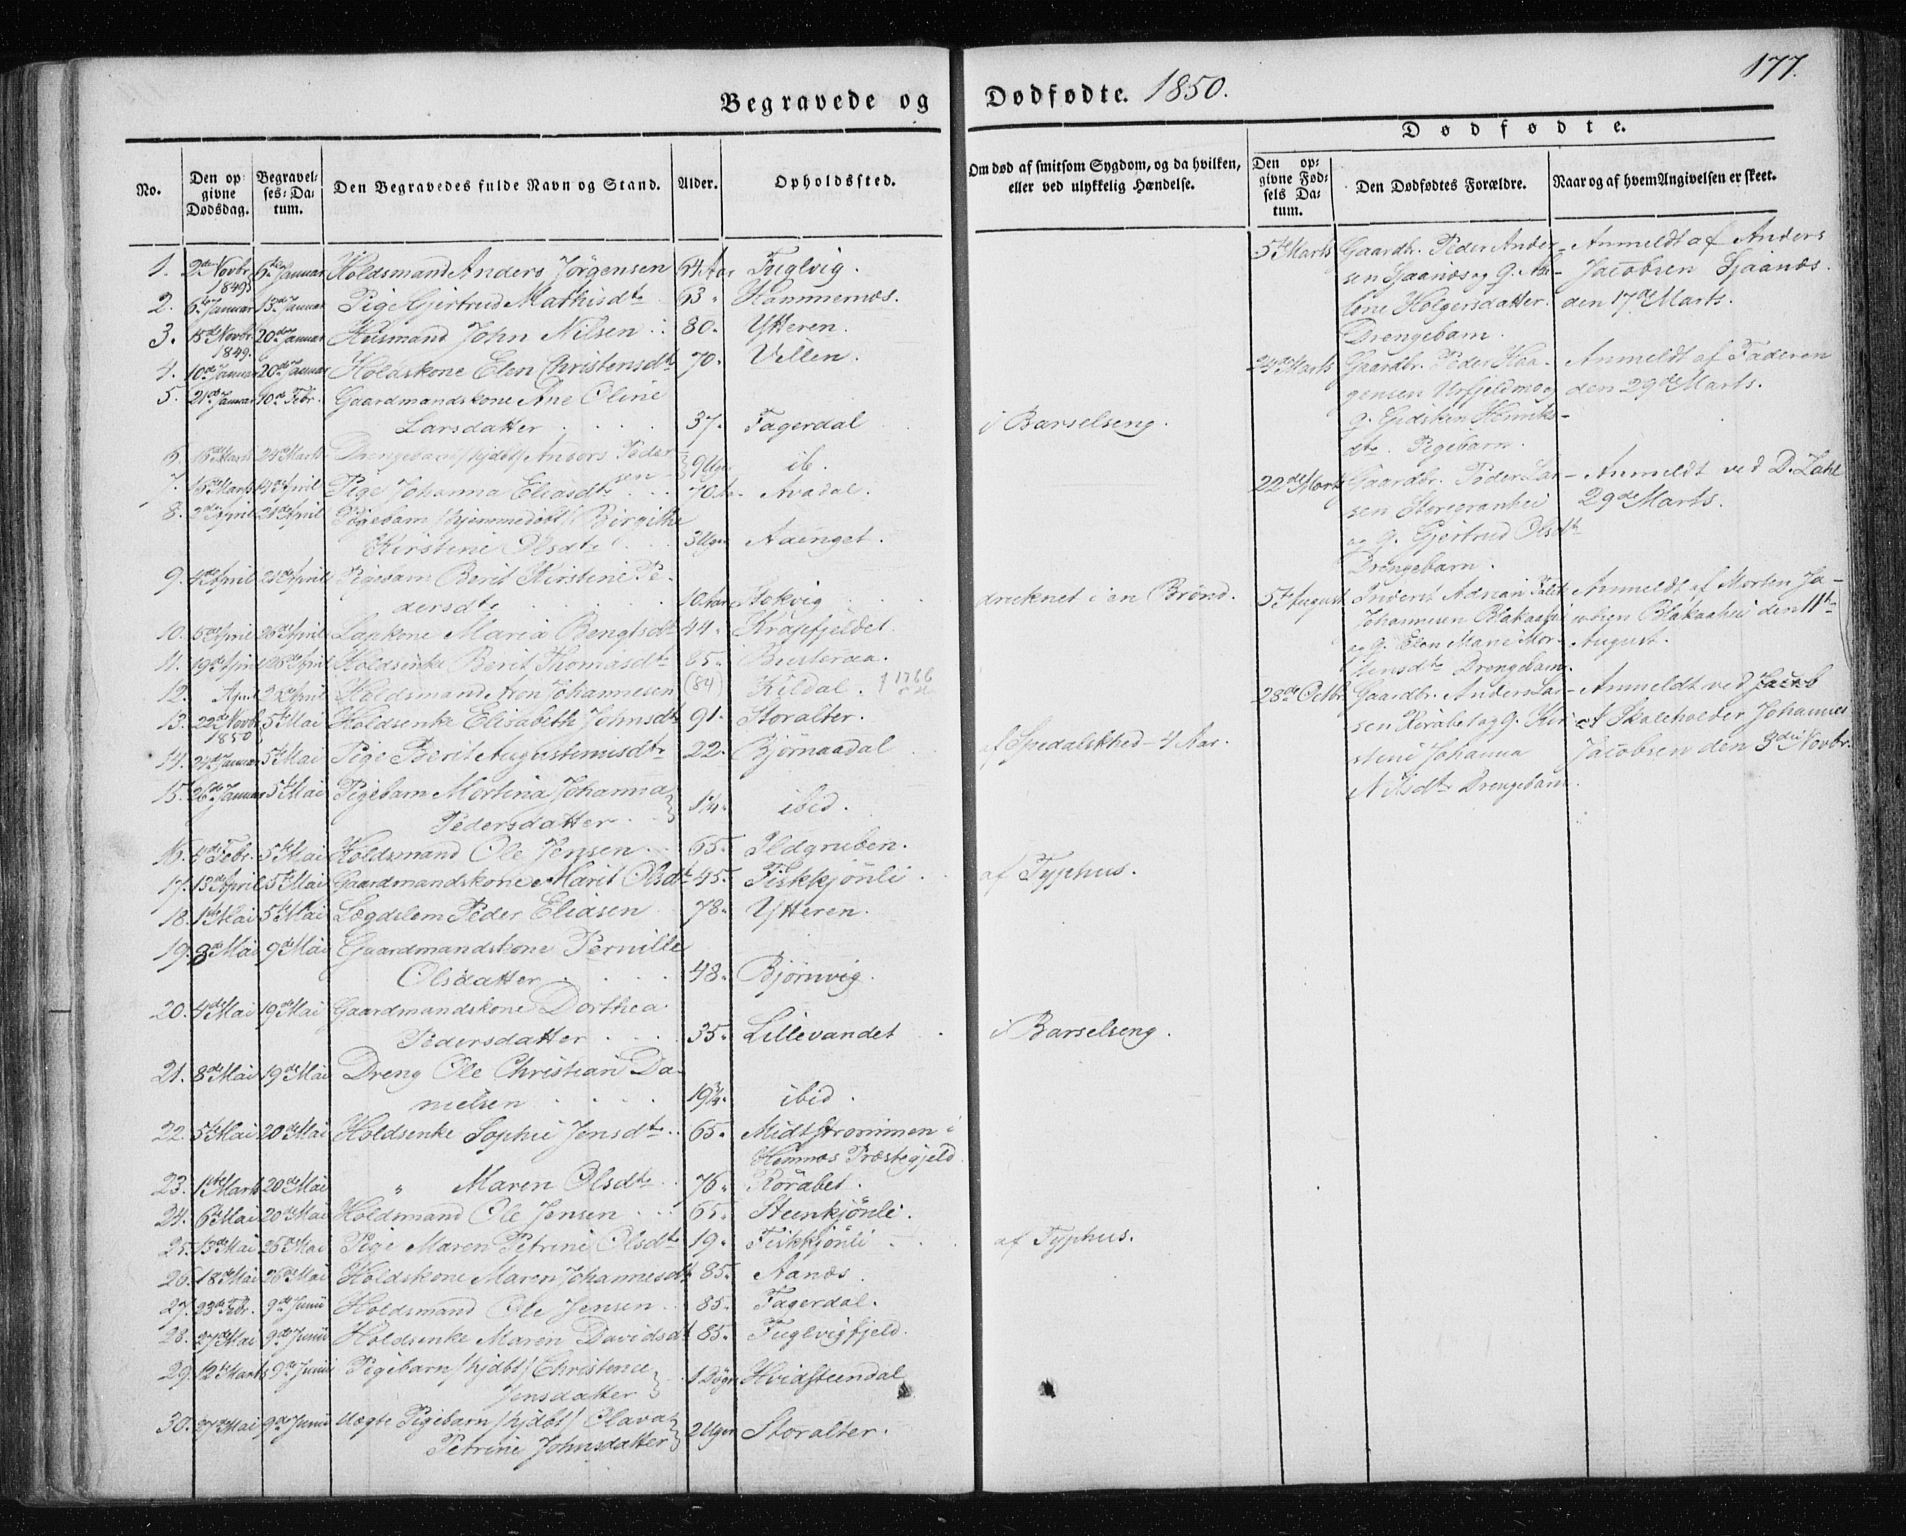 177.
Begravede og Dødfødte. 1850.
Dødfødte.
No.
Den opgivne Dødsdag.
Begravelses-Datum.
Den Begravedes fulde Navn og Stand.
Alder.
Opholdssted.
Om død af smitsom Sygdom, og da hvilken, eller ved ulykkelig Hændelse.
Den opgivne Fødsels Datum.
Den Dødfødtes Forældre.
Naar og af hvem Angivelsen er skeet.
1. 2den Novbr 1849 6te Januar Holdsmand Anders Jørgensen 64 Aar Fuglvig.
2. 6te Januar 13de Januar Pige Gjertrud Mathisdtr 63 " Hammernæs.
3. 18de Novbr 1849. 20de Januar Husmand John Nilsen 80. Ytteren.
4. 10de Januar 20de Januar Holdskone Elen Christensdtr 70. Villen.
5. 21de Januar 10de Febr. Gaardmandskone Ane Oline
Larsdatter 37. Fagerdal i Barselseng.
6. 16de Marts 24de Marts Drengebarn /hjdbt/ Anders Pedersen 9 Uger ib.
7. 14de April Pige Johanna Eliasdtr 70 Aar Avadal.
8. 2den April 21de April Pigebarn /hjemmedøbt/ Birgithe
Kirstine Olsdtr 3 Uger Aaenget.
9. 4de April 21de April Pigebarn Berit Kirstine Pe-
dersdtr 10 Aar Stokvig druknet i en Brønd.
10. 5te April 26de April Lapkone Maria Bengtsdtr 44. Krapfjeldet
11. 19de April 26de April Holdsenke Berit Thomasdtr 85. Busteraa
12. April Holdsmand Aron Johannesen (84) Kildal. f 1766
13. 22de Novbr 5te Mai Holdsenke Elisabeth Johnsdtr 91. Storalter.
14. 1850 24de Januar 5te Mai Pige Berit Augustinusdtr 22. Bjørnaadal af Spedalskhed - 4 Aar.
15. 26de Januar 5te Mai Pigebarn Mortina Johanna
Pedersdatter 1 1/4 ibid.
16. 4de Febr. 5te Mai Holdsmand Ole Jensen 65. Ildgruben.
17. 13de April 5te Mai Gaardmandskone Marit Olsdtr 45. Fiskkjønli af Typhus.
18. 1ste Mai 5te Mai Lægdslem Peder Eliasen 78. Ytteren.
19. 3de Mai 9de Mai Gaardmandskone Pernille
Olsdatter 48. Bjørnvig.
20. 4de Mai 19de Mai Gaardmandskone Dorthea
Pedersdatter 35. Lillevandet i Barselseng.
21. 8de Mai 19de Mai Dreng Ole Christian Da-
nielsen 19 3/4. ibid.
22. 5te Mai 20de Mai Holdsenke Sophie Jensdtr 65. Midtstrømmen i
Hemnæs Præstegjeld.
23. 1ste Marts 20de Mai " Maren Olsdtr 76. Røråbet.
24. 6te Mai 20de Mai Holdsmand Ole Jensen 65. Steenkjønli.
25. 13de Mai 26de Mai Pige Maren Petrine Olsdtr 19. Fiskkjønli af Typhus.
26. 18de Mai 26de Mai Holdskone Maren Johannesdtr 85. Aanæs.
27. 23de Febr. 9de Junii Holdsmand Ole Jensen 85. Fagerdal.
28. 27de Mai 9de Junii Holdsenke Maren Davidsdtr 85. Fuglvigfjeld.
29. 12te Marts 9de Junii Pigebarn /hjdbt/ Christence
Jensdatter 1 Døgn Hvidsteendal
30. 27de Mai 9de Junii Uægte Pigebarn /hjdbt/ Olava
Petrine Johnsdatter 2 Uger Storalter.
5te Marts Gaardbr. Peder Ander- Anmeldt af Anders
sen Sjaanæs og G. Ma- Jacobsen Sjaanæs
lene Holgersdatter. den 17de Marts.
Drengebarn.
24de Marts Gaardbr. Peder Haa- Anmeldt af Faderen
gensen Urfjeldmo og den 29de Marts.
G. Gidsken Henriks-
dtr Pigebarn.
22de Marts Gaardbr. Peder Lar- Anmeldt ved D. Zahl
sen 29de Marts.
og G. Gjertrud Olsdtr
Drengebarn.
5te August Inderst Adrian Anmeldt af Morten Ja-
Johannesen Blakaahei cobsen Blakaahei den 11te
og G. Elen Marie Mor- August.
tensdtr Drengebarn.
28de Octbr. Gaardbr. Anders Lar- Anmeldt ved Jacob
sen Røråbet og G. Kir- A Skoleholder Johannes
stine Johanna Jacobsen den 3die Novbr.
Nilsdtr Drengebarn.